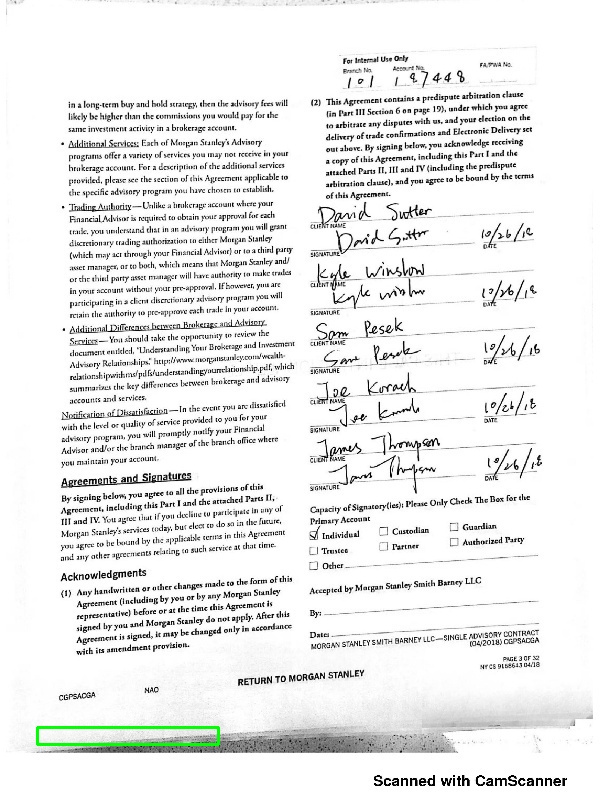 For Internal Use Only
Branch No. Account No. FA/PWA No.
101 187448
in a long-term buy and hold strategy, then the advisory fees will
likely be higher than the commissions you would pay for the
same investment activity in a brokerage account.
• Additional Services: Each of Morgan Stanley's Advisory
programs offer a variety of services you may not receive in your
brokerage account. For a description of the additional services
provided, please see the section of this Agreement applicable to
the specific advisory program you have chosen to establish.
• Trading Authority — Unlike a brokerage account where your
Financial Advisor is required to obtain your approval for each
trade, you understand that in an advisory program you will grant
discretionary trading authorization to either Morgan Stanley
(which may act through your Financial Advisor) or to a third party
asset manager, or to both, which means that Morgan Stanley and/
or the third party asset manager will have authority to make trades
in your account without your pre-approval. If however, you are
participating in a client discretionary advisory program you will
retain the authority to pre-approve each trade in your account.
• Additional Differences between Brokerage and Advisory
Services — You should take the opportunity to review the
document entitled, "Understanding Your Brokerage and Investment
Advisory Relationships," http://www.morganstanley.com/wealth-
relationshipwithms/pdfs/understandingyourrelationship.pdf, which
summarizes the key differences between brokerage and advisory
accounts and services.
Notification of Dissatisfaction — In the event you are dissatisfied
with the level or quality of service provided to you for your
advisory program, you will promptly notify your Financial
Advisor and/or the branch manager of the branch office where
you maintain your account.
Agreements and Signatures
By signing below, you agree to all the provisions of this
Agreement, including this Part I and the attached Parts II,
III and IV. You agree that if you decline to participate in any of
Morgan Stanley's services today, but elect to do so in the future,
you agree to be bound by the applicable terms in this Agreement
and any other agreements relating to such service at that time.
Acknowledgments
(1) Any handwritten or other changes made to the form of this
Agreement (including by you or by any Morgan Stanley
representative) before or at the time this Agreement is
signed by you and Morgan Stanley do not apply. After this
Agreement is signed, it may be changed only in accordance
with its amendment provision.
(2) This Agreement contains a predispute arbitration clause
(in Part III Section 6 on page 19), under which you agree
to arbitrate any disputes with us, and your election on the
delivery of trade confirmations and Electronic Delivery set
out above. By signing below, you acknowledge receiving
a copy of this Agreement, including this Part I and the
attached Parts II, III and IV (including the predispute
arbitration clause), and you agree to be bound by the terms
of this Agreement.
David Sutter
CLIENT NAME
David Sutter 10/26/18
SIGNATURE DATE
Kyle Winslow
CLIENT NAME
Kyle Winslow 10/26/18
SIGNATURE DATE
Sam Pesek
CLIENT NAME
Sam Pesek 10/26/18
SIGNATURE DATE
Joe Korach
CLIENT NAME
Joe Korach 10/26/18
SIGNATURE DATE
James Thompson
CLIENT NAME
James Thompson 10/26/18
SIGNATURE DATE
Capacity of Signatory(ies): Please Only Check The Box for the
Primary Account
Individual Custodian Guardian
Trustee Partner Authorized Party
Other
Accepted by Morgan Stanley Smith Barney LLC
By:
Date:
MORGAN STANLEY SMITH BARNEY LLC—SINGLE ADVISORY CONTRACT
(04/2018) CGPSACGA
PAGE 3 OF 32
RETURN TO MORGAN STANLEY
CGPSACGA NAO
Scanned with CamScanner